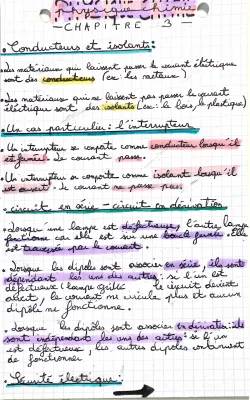 physique chimie
— CHAPITRE 3 —
• Conducteurs et isolants :
• Les matériaux qui laissent passer le courant éléctrique
sont des conducteurs (ex : les métaux)
• Les matériaux qui ne laissent pas passer le courant
éléctrique sont des isolants (ex : le bois, le plastique)
• Un cas particulier : l'interrupteur
• Un interrupteur se comporte comme conducteur lorsqu'il
est fermé. Le courant passe.
• Un interrupteur se comporte comme isolant lorsqu'il
est ouvert. Le courant ne passe pas.
circuit en série - circuit en dérivation
• Lorsque une lampe est défectueuse, l'autre lampe
fonctionne car elle est sur une boucle fermée. Elle
est traversée par le courant.
• Lorsque les dipoles sont associer en série, ils sont
dépendant les uns des autres : si l'un est
défectueux (lampe grillée le circuit devient
ouvert, le courant ne circule plus et aucun
dipôle ne fonctionne.
• Lorsque les dipôles sont associer en dérivation : ils
sont indépendant les uns des autres : si l'un
est défectueux, les autres dipoles continuent
de fonctionner
• Sécurité éléctrique :